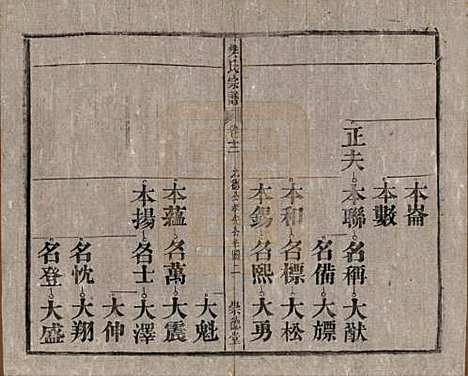 本崙
本數
正夫 本聯 名稱 大猷
名備 大標
本和 名標 大松
本錫 名熙 大勇
吳氏宗譜 卷十二 二 樂荒堂
大魁
本蘊 名萬 大震
本揚 名士 大澤
大伸
名忱 大翔
名登 大盛